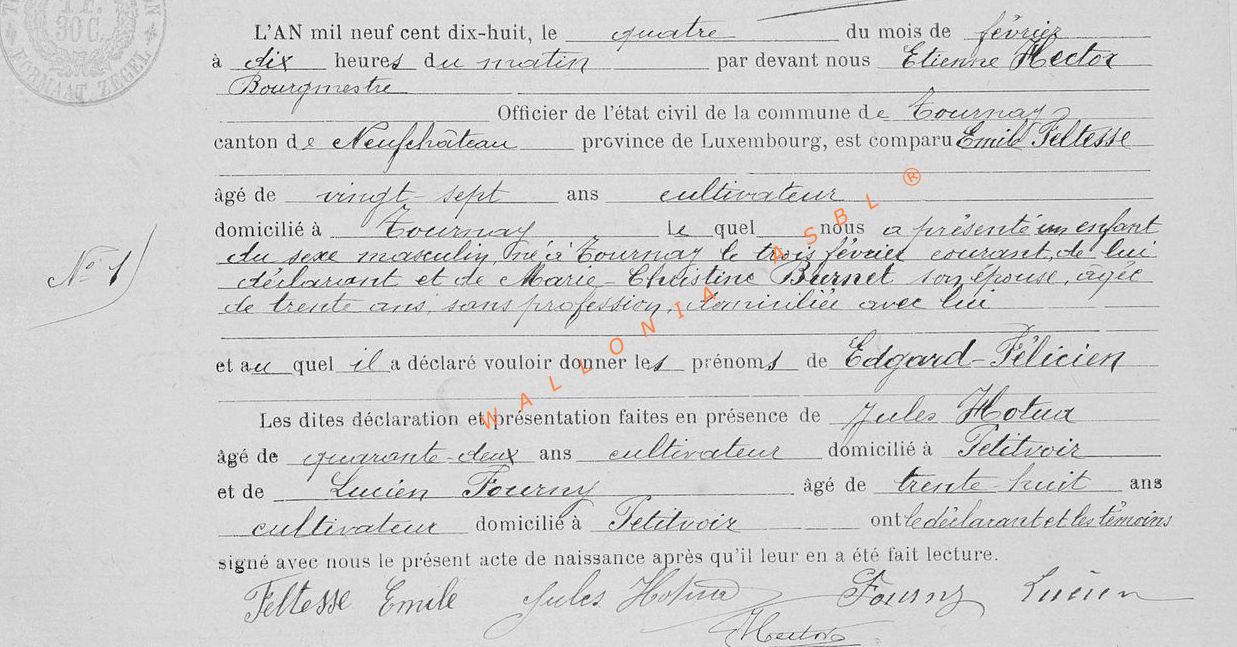 30 C.
FORMAAT. ZEGEL
L'AN mil neuf cent dix-huit, le quatre du mois de février
à dix heures du matin par devant nous Etienne Hector
Bourgmestre
Officier de l'état civil de la commune de Tournay
canton de Neufchâteau province de Luxembourg, est comparu Emile Feltesse
âgé de vingt sept ans cultivateur
domicilié à Tournay Le quel nous a présenté un enfant
du sexe masculin, né à Tournay le trois février courant, de lui
déclarant et de Marie-Christine Burnet son épouse, agée
de trente ans, sans profession, domiciliée avec lui
N° 1
et au quel il a déclaré vouloir donner les prénoms de Edgard-Félicien
Les dites déclaration et présentation faites en présence de Jules Hotua
âgé de quarante-deux ans cultivateur domicilié à Petitvoir
et de Lucien Fourny âgé de trente-huit ans
cultivateur domicilié à Petitvoir ont le déclarant et les témoins
signé avec nous le présent acte de naissance après qu'il leur en a été fait lecture.
Feltesse Emile Jules Hotua Fourny Lucien
Hector
WALLONIA ASBL ®